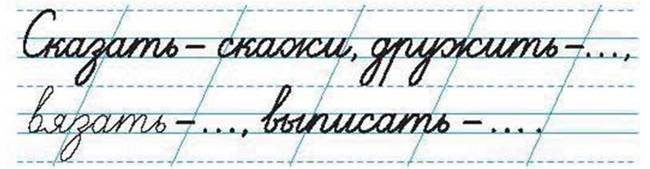 Сказать – скажи, дружить – ...,
вязать – ..., выписать – ... .